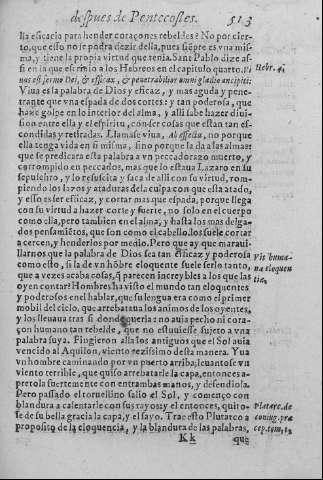 despues de Pentecostes. 513
lla eficacia para hender coraçones rebeldes? No por cierto,
que esso no se podra dezir della, pues siẽpre es vna misma,
y tiene la propia virtud que tenia. Sant Pablo dize assi
en la que escriuio a los Hebreos en el capitulo quarto. Viuus
est sermo Dei, & efficax, & penetrabilior omni gladio ancipiti:
Hebr. 4.
Viua es la palabra de Dios y eficaz, y mas aguda y penetrante
que vna espada de dos cortes: y tan poderosa, que
haze golpe en lo interior del alma, y alli sabe hazer diuision
entre ella y el espiritu, con ser cosas que estan tan escondidas
y retiradas. Llamase viua, Ab effectu, no porque
ella tenga vida en si misma, sino porque la da a las almas:
que se predicara esta palabra a vn peccador tan muerto, y
corrompido en peccados, mas que lo estaua Lazaro en su
sepulchro, y lo resuscita y saca de alli con su virtud, rompiendo
los lazos y ataduras de la culpa con que esta atado,
y esso es ser efficaz, y cortar mas que espada, porque llega
con su virtud a hazer corte y fuerte, no solo en el cuerpo
como ella, pero tambien en el alma, y hasta los mas delgados
pensamiẽtos, que son como el cabello, los suele cortar
a cercen, y henderlos por medio. Pero que ay que marauillarnos
que la palabra de Dios sea tan efficaz y poderosa
Vis humana
eloquentia.
como esto, si la de vn hõbre eloquente suele serlo tanto,
que a vezes acaba cosas, q̃ parecen increybles a los que las
oyen contar? Hombres ha visto el mundo tan eloquentes
y poderosos en el hablar, que su lengua era como el primer
mobil del cielo, que arrebataua los animos de los oyentes,
y los lleuaua tras si donde queria: no auia pecho ni coraçon
humano tan rebelde, que no estuuiesse sujeto a vna
palabra suya. Fingieron alla los antiguos que el Sol auia
vencido al Aquilon, viento rezissimo desta manera. Yua
vn hombre caminando por vn puerto arriba; leuantose vn
viento terrible, que quiso arrebatarle la capa, entonces apretola
fuertemente con entrambas manos, y defendiola.
Pero passado el toruellino salio el Sol, y començo con
blandura a calentarle con sus rayos: y el entonces, quitose
de su bella gracia la capa, y el sayo. Trae esto Plutarco a
Plutarc. de
coniug. præ
cep. tom. 1.
proposito de la eloquencia, y la blandura de las palabras,
Kk que